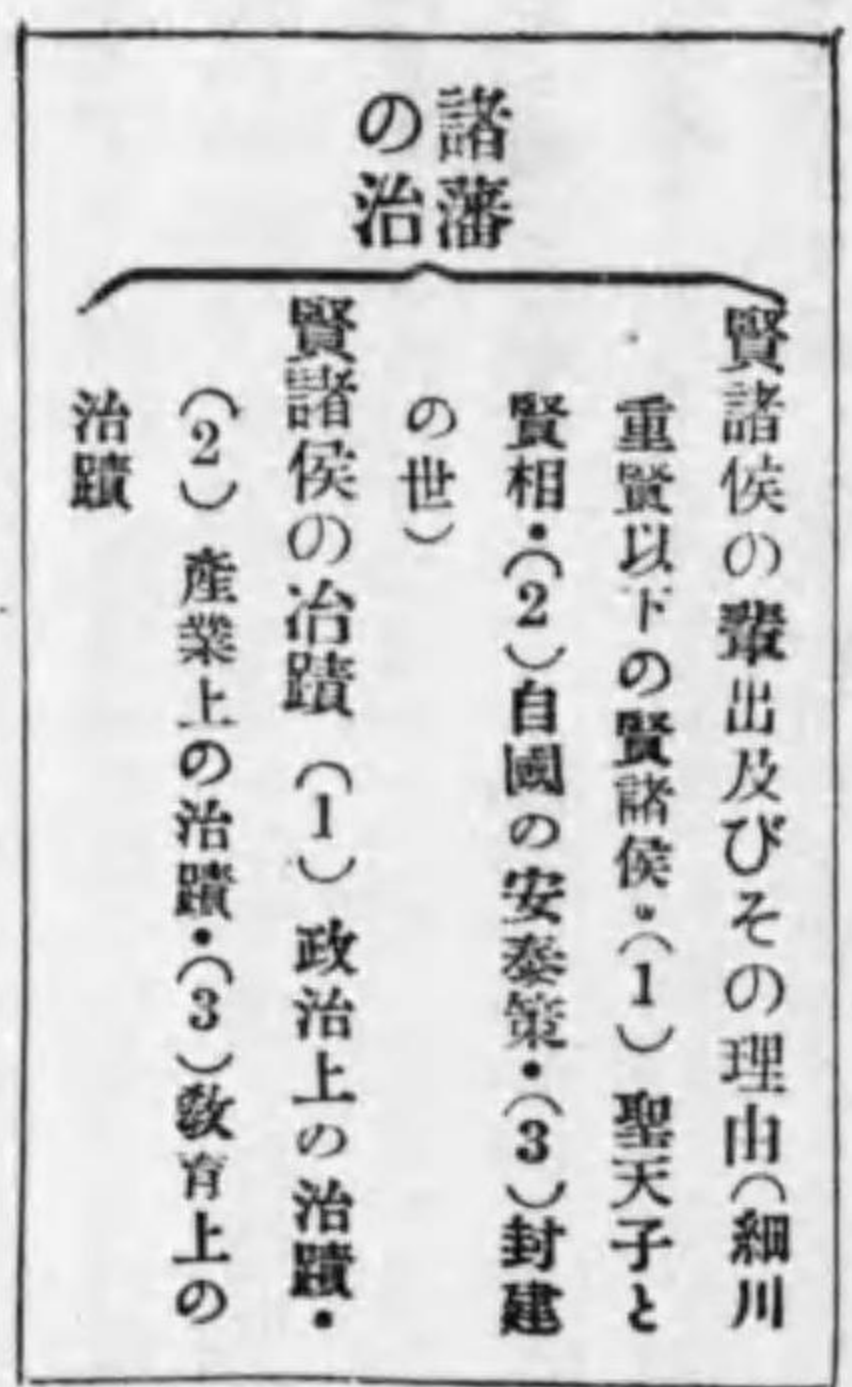 諸藩
の治
賢諸侯の輩出及びその理由(細川
重賢以下の賢諸侯・(1) 聖天子と
賢相・(2)自國の安泰策・(3)封建
の世)
賢諸侯の治蹟 (1) 政治上の治蹟・
(2) 産業上の治蹟・(3)教育上の
治蹟